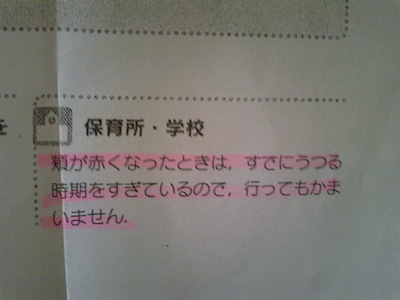 を
保育所・学校
頬が赤くなったときは，すでにうつる
時期をすぎているので，行ってもかま
いません．